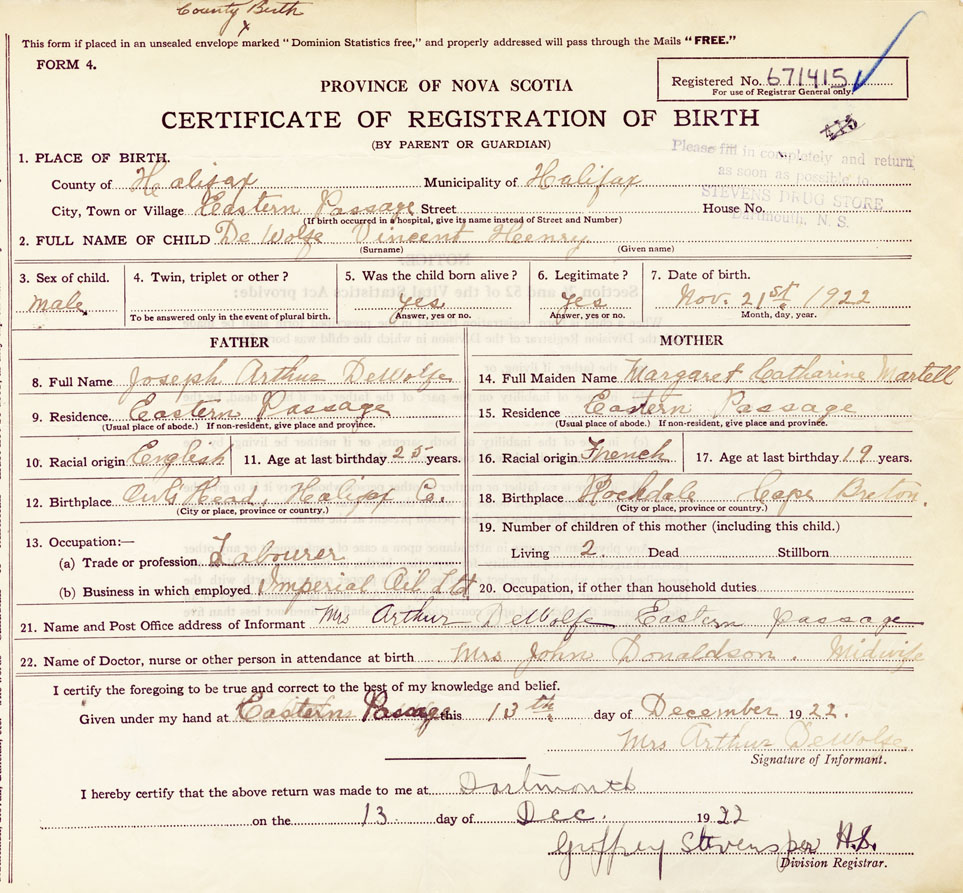 County Birth
This form if placed in an unsealed envelope marked "Dominion Statistics free," and properly addressed will pass through the Mails "FREE."
FORM 4.
Registered No. 671415
For use of Registrar General only.
PROVINCE OF NOVA SCOTIA
CERTIFICATE OF REGISTRATION OF BIRTH
415
(BY PARENT OR GUARDIAN)
Please fill in completely and return
as soon as possible to
STEVENS DRUG STORE
Dartmouth, N. S.
1. PLACE OF BIRTH.
County of Halifax Municipality of Halifax
City, Town or Village Eastern Passage Street House No.
(If birth occurred in a hospital, give its name instead of Street and Number)
2. FULL NAME OF CHILD De Wolfe Vincent Henry
(Surname) (Given name)
3. Sex of child. 4. Twin, triplet or other? 5. Was the child born alive? 6. Legitimate? 7. Date of birth.
male yes yes Nov. 21st 1922
To be answered only in the event of plural birth. Answer, yes or no. Answer, yes or no. Month, day, year.
FATHER MOTHER
8. Full Name Joseph Arthur DeWolfe 14. Full Maiden Name Margaret Catharine Martell
9. Residence. Eastern Passage 15. Residence Eastern Passage
(Usual place of abode.) If non-resident, give place and province. (Usual place of abode.) If non-resident, give place and province.
10. Racial origin English 11. Age at last birthday 25 years. 16. Racial origin French 17. Age at last birthday 19 years.
12. Birthplace Owls Head, Halifax Co. 18. Birthplace Rockdale Cape Breton.
(City or place, province or country.) (City or place, province or country.)
19. Number of children of this mother (including this child.)
13. Occupation:—
(a) Trade or profession Labourer Living 2 Dead Stillborn
(b) Business in which employed Imperial Oil Ltd 20. Occupation, if other than household duties
21. Name and Post Office address of Informant Mrs Arthur DeWolfe Eastern Passage
22. Name of Doctor, nurse or other person in attendance at birth Mrs John Donaldson. Midwife
I certify the foregoing to be true and correct to the best of my knowledge and belief.
Given under my hand at Eastern Passage this 13th day of December 1922.
Mrs Arthur DeWolfe
Signature of Informant.
I hereby certify that the above return was made to me at Dartmouth
on the 13 day of Dec. 1922
Geoffrey Stevens per H.S.
Division Registrar.